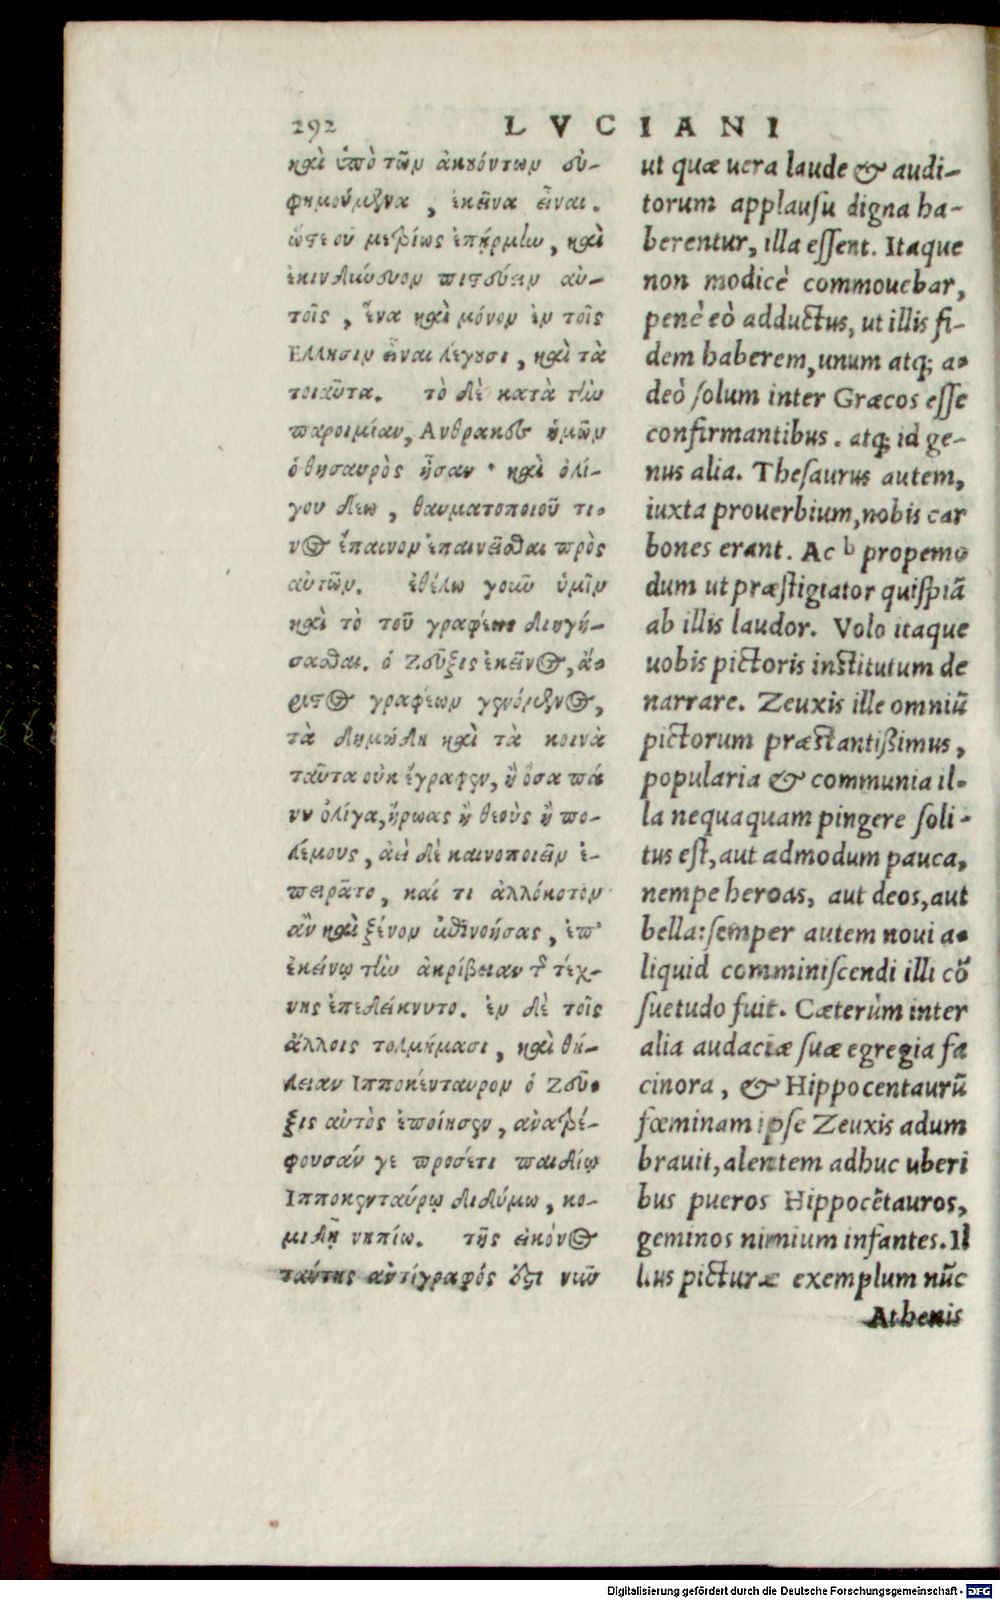 292 LVCIANI
καὶ ὑπὸ τῶν ἀκουόντων εὐ-
φημούμενα, ἐκεῖνα εἶναι.
ὥστε οὐ μετρίως ἐπῄρμην, καὶ
ἐκινδύνευον πιστεύειν αὐ-
τοῖς, ἕνα καὶ μόνον ἐν τοῖς
Ελλησιν εἶναι λέγουσι, καὶ τὰ
τοιαῦτα. τὸ δὲ κατὰ τὴν
παροιμίαν, Ανθρακες ἡμῶν
ὁ θησαυρὸς ἦσαν· καὶ ὀλί-
γου δέω, θαυματοποιοῦ τι-
νος ἔπαινον ἐπαινεῖσθαι πρὸς
αὐτῶν. ἐθέλω γοῦν ὑμῖν
καὶ τὸ τοῦ γραφέως διηγή-
σασθαι. ὁ Ζεῦξις ἐκεῖνος, ἄ-
ριστος γραφέων γενόμενος,
τὰ δημώδη καὶ τὰ κοινὰ
ταῦτα οὐκ ἔγραφεν, ἢ ὅσα πά
νυ ὀλίγα, ἥρωας ἢ θεοὺς ἢ πο-
λέμους, ἀεὶ δὲ καινοποιεῖν ἐ-
πειρᾶτο, καί τι ἀλλόκοτον
ἂν καὶ ξένον ἐπινοήσας, ἐπ'
ἐκείνῳ τὴν ἀκρίβειαν τῆς τέχ-
νης ἐπεδείκνυτο. ἐν δὲ τοῖς
ἄλλοις τολμήμασι, καὶ θή-
λειαν Ιπποκένταυρον ὁ Ζεῦ-
ξις αὐτὸς ἐποίησεν, ἀνατρέ-
φουσάν γε προσέτι παιδίῳ
Ιπποκενταύρῳ διδύμω, κο-
μιδῇ νηπίω. τῆς εἰκόνος
ταύτης ἀντίγραφός ἐστι νῦν
ut quæ uera laude & audi-
torum applausu digna ha-
berentur, illa essent. Itaque
non modicè commouebar,
penè eò adductus, ut illis fi-
dem haberem, unum atq; a-
deò solum inter Græcos esse
confirmantibus. atq; id ge-
nus alia. Thesaurus autem,
iuxta prouerbium, nobis car
bones erant. Ac b propemo
dum ut præstigiator quispiã
ab illis laudor. Volo itaque
uobis pictoris institutum de
narrare. Zeuxis ille omniũ
pictorum præstantißimus,
popularia & communia il-
la nequaquam pingere soli-
tus est, aut admodum pauca,
nempe heroas, aut deos, aut
bella: semper autem noui a-
liquid comminiscendi illi cõ
suetudo fuit. Cæterùm inter
alia audaciæ suæ egregia fa
cinora, & Hippocentaurũ
fœminam ipse Zeuxis adum
brauit, alentem adhuc uberi
bus pueros Hippocẽtauros,
geminos nimium infantes. Il
lius picturæ exemplum nũc
Athenis
Digitalisierung gefördert durch die Deutsche Forschungsgemeinschaft - DFG